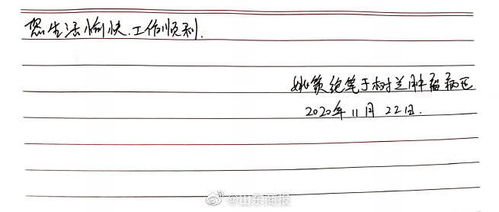 您生活愉快.工作顺利.
姚策绝笔于树兰肿瘤病区
2020年11月22日.
@山东商报